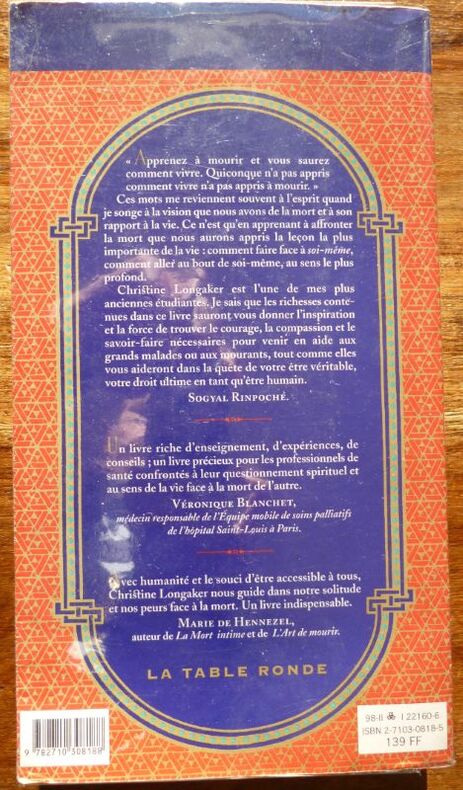 « Apprenez à mourir et vous saurez
comment vivre. Quiconque n'a pas appris
comment vivre n'a pas appris à mourir. »
Ces mots me reviennent souvent à l'esprit quand
je songe à la vision que nous avons de la mort et à son
rapport à la vie. Ce n'est qu'en apprenant à affronter
la mort que nous aurons appris la leçon la plus
importante de la vie : comment faire face à soi-même,
comment aller au bout de soi-même, au sens le plus
profond.
Christine Longaker est l'une de mes plus
anciennes étudiantes. Je sais que les richesses conte-
nues dans ce livre sauront vous donner l'inspiration
et la force de trouver le courage, la compassion et le
savoir-faire nécessaires pour venir en aide aux
grands malades ou aux mourants, tout comme elles
vous aideront dans la quête de votre être véritable,
votre droit ultime en tant qu'être humain.
SOGYAL RINPOCHÉ.
Un livre riche d'enseignement, d'expériences, de
conseils ; un livre précieux pour les professionnels de
santé confrontés à leur questionnement spirituel et
au sens de la vie face à la mort de l'autre.
VÉRONIQUE BLANCHET,
médecin responsable de l'Équipe mobile de soins palliatifs
de l'hôpital Saint-Louis à Paris.
Avec humanité et le souci d'être accessible à tous,
Christine Longaker nous guide dans notre solitude
et nos peurs face à la mort. Un livre indispensable.
MARIE DE HENNEZEL,
auteur de La Mort intime et de L'Art de mourir.
LA TABLE RONDE
9 782710 308188
98-II I 22160-6
ISBN 2-7103-0818-5
139 FF